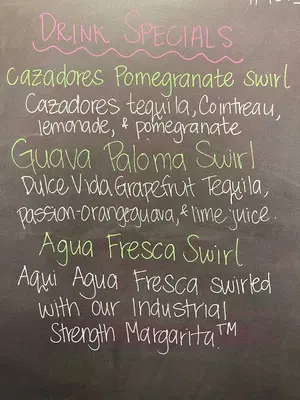 DRINK SPECIALS
Cazadores Pomegranate swirl
Cazadores tequila, Cointreau,
lemonade, & pomegranate
Guava Paloma Swirl
Dulce Vida Grapefruit Tequila,
passion-orangeguava, & lime juice.
Agua Fresca Swirl
Aqui Agua Fresca swirled
with our Industrial
Strength Margarita.™